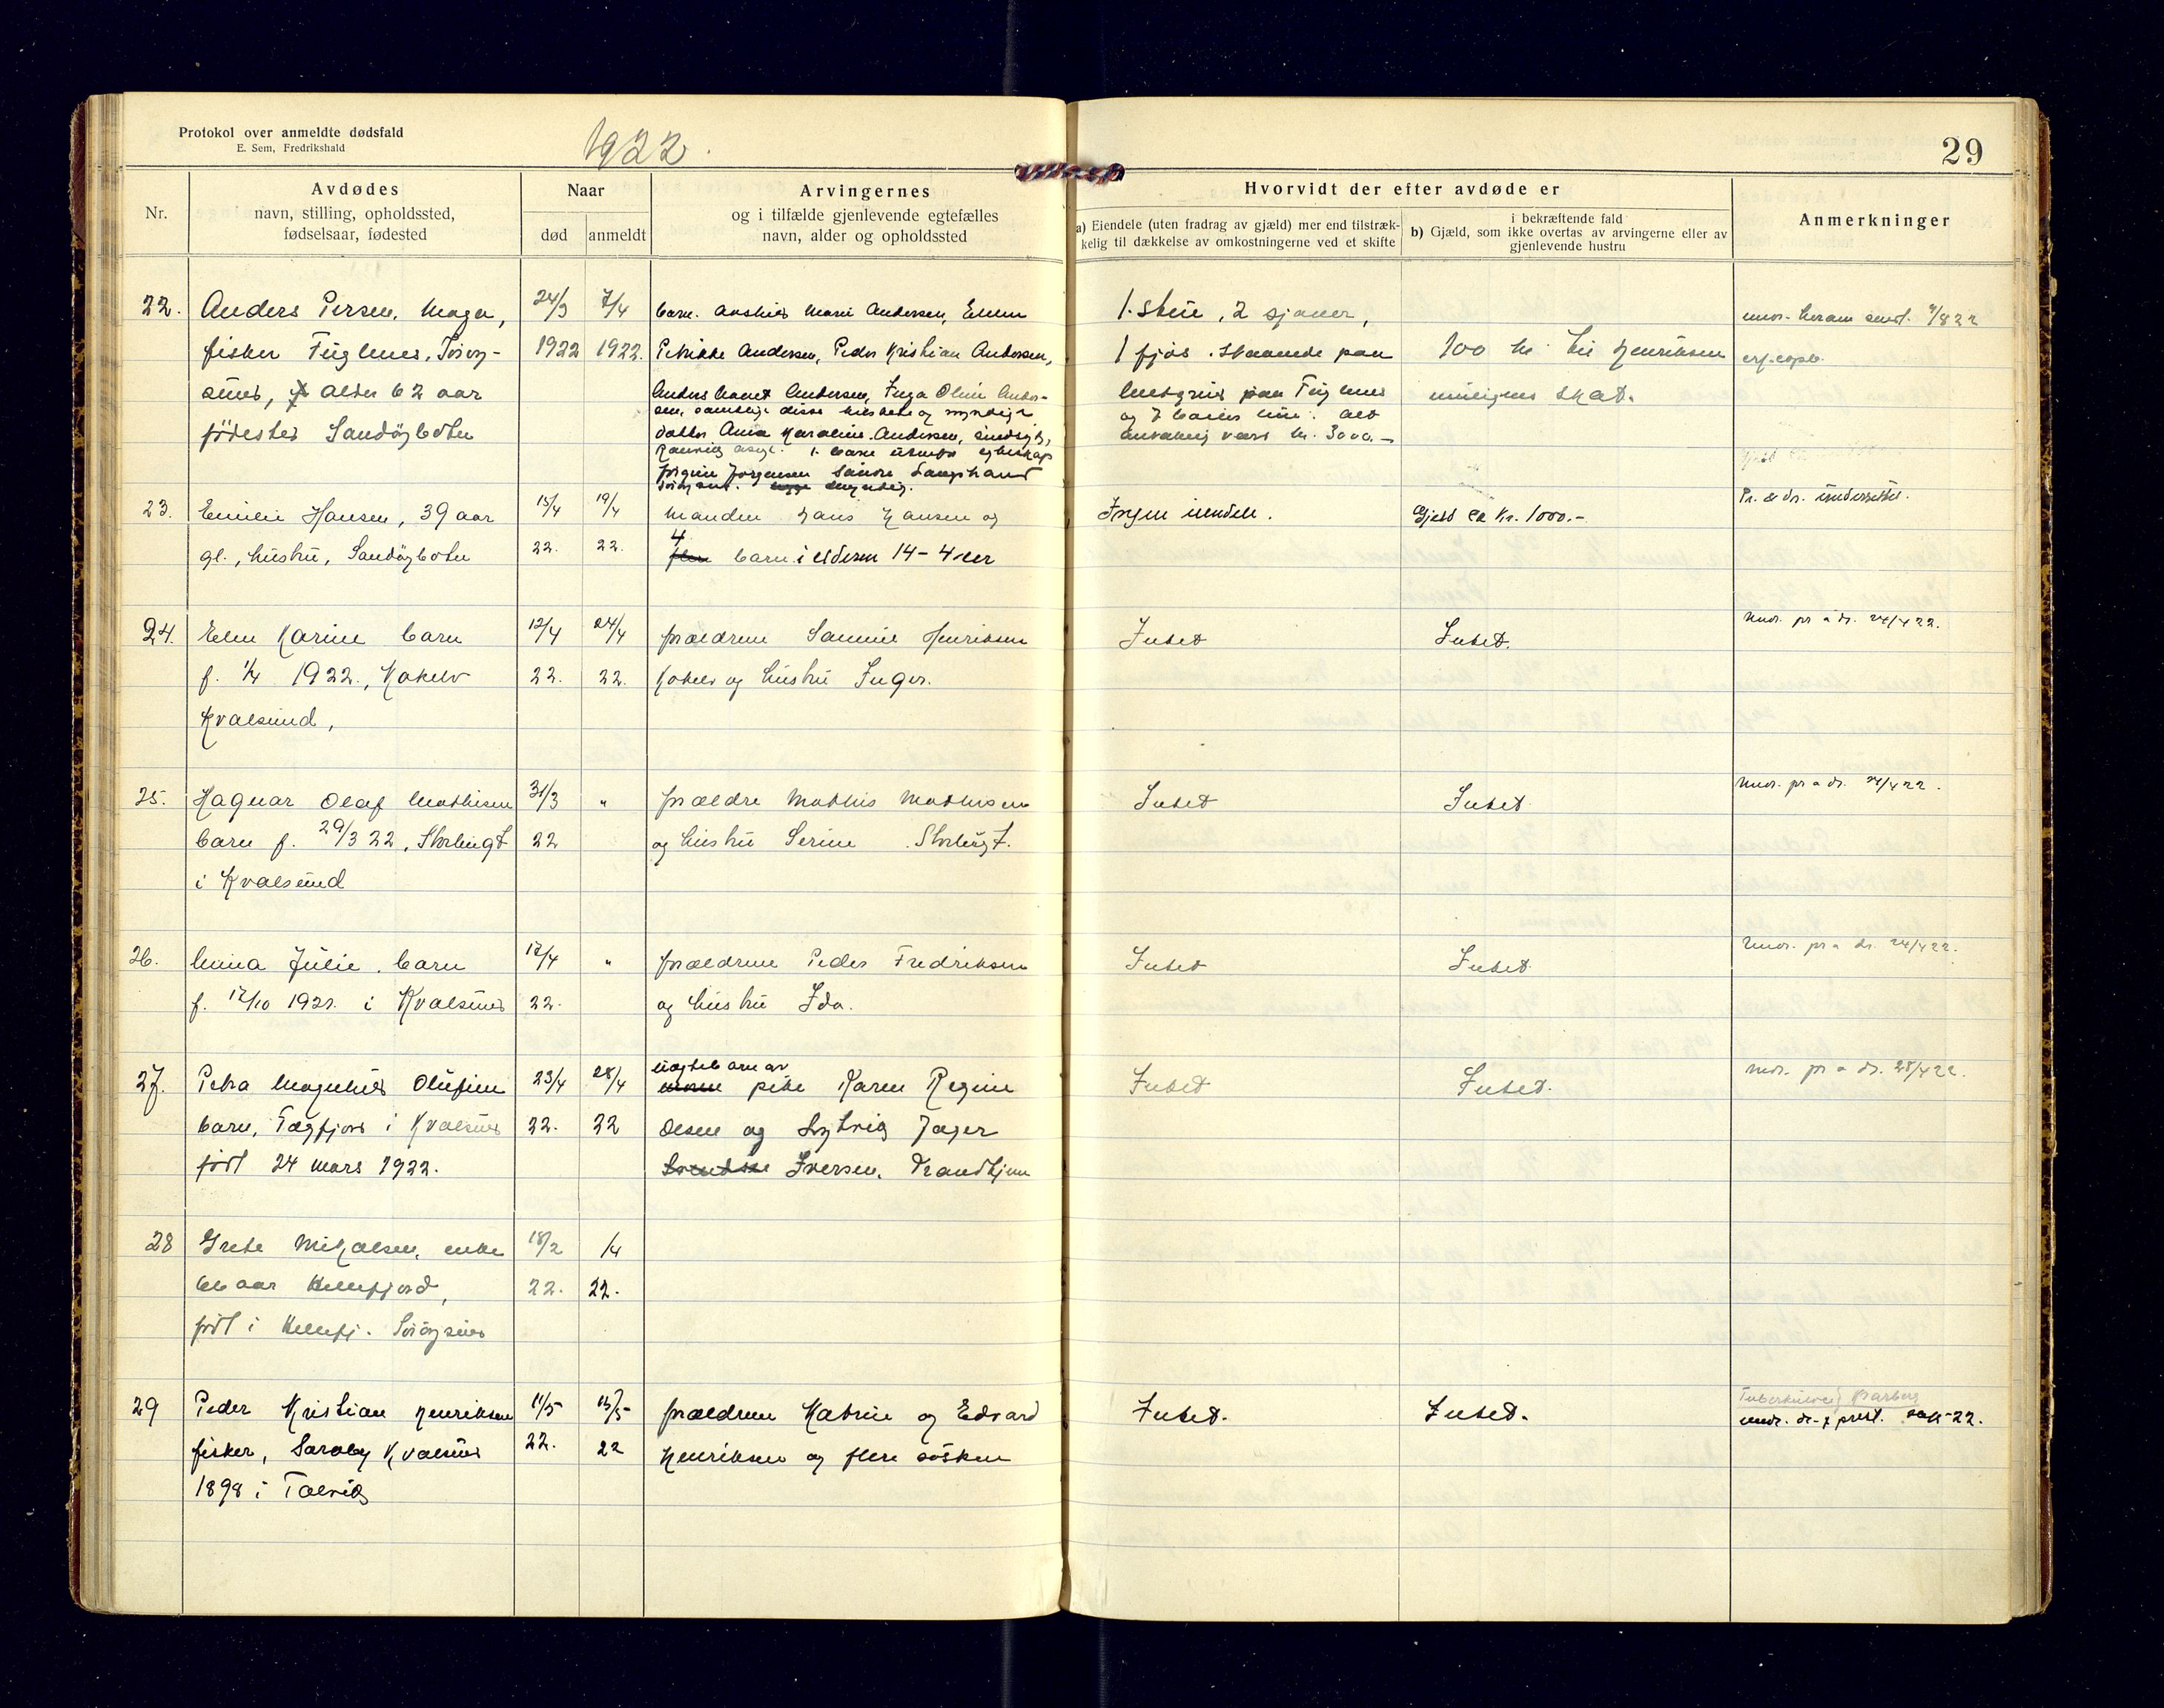 Protokol over anmeldte dødsfald
E. Sem, Fredrikshald
1922.
29
Nr.
Avdødes
navn, stilling, opholdssted,
fødselsaar, fødested
Naar
død
anmeldt
Arvingernes
og i tilfælde gjenlevende egtefælles
navn, alder og opholdssted
Hvorvidt der efter avdøde er
a) Eiendele (uten fradrag av gjæld) mer end tilstræk-
kelig til dækkelse av omkostningerne ved et skifte
i bekræftende fald
b) Gjæld, som ikke overtas av arvingerne eller av
gjenlevende hustru
Anmerkninger
22. Anders Persen, Maga, 24/3 7/4 barn. Marie Andersen, 1. 2 sjaaer,
fisker Fuglenes, Sørøy- 1922 1922. Petrikke Andersen, Peder Kristian Andersen, 1 fjøs. staaende paa 100 kr. til Henriksen
sund, alder 62 aar Andersen, Inga Oline Ander- paa Fuglenes skat.
fødested Sandøybotn sen, samtlige disse og myndige
og alt
datter Ana Karoline Andersen, sindsyk, værd kr. 3000.-
1. barn utenfor egteskap
Jørgensen Langstrand
myndig.
23. Emilie Hansen, 39 aar 15/4 19/4 Manden Hans Hansen og Ingen eiendele. Gjeld ca kr. 1000.- Pr. & dr. underrettet.
gl., hustru, Sandøybotn 22. 22. 4 barn i alderen 14-4 aar
24. Elen Karine barn 12/4 24/4 forældrene Samuel Henriksen Intet Intet. undr. pr a dr. 24/4 22.
f. 1/4 1922., Kokelv 22. 22. Kokelv og hustru Inger.
Kvalsund,
25. Hagnar Olaf Mathisen 31/3 " forældre Mathis Mathisen Intet Intet undr. pr a dr. 24/4 22.
barn f. 29/3 22, Storbugt 22 og hustru Serine Storbugt.
i Kvalsund
26. Minna Julie, barn 12/4 " forældrene Peder Fredriksen Intet Intet undr. pr a dr. 24/4 22.
f. 12/10 1921. i Kvalsund 22. og hustru Ida.
27. Petra Magnhild Olufine 23/4 28/4 uegte barn av pike Karen Regine Intet Intet. undr. pr a dr. 28/4 22.
barn, i Kvalsund 22. 22 Olsen og Jager
født 24 mars 1922. Iversen, Trondhjem
28 Grete Mikalsen, enke 18/2 /4
66 aar Kellefjord, 22. 22.
født i Kellefj. Sørøysund
29 Peder Kristian Henriksen 11/5 15/5 forældrene Katrine og Edvard Intet. Intet. undr. dr. & prest.
fisker, Saraby Kvalsund 22. 22 Henriksen og flere søsken
1898 i Talvik